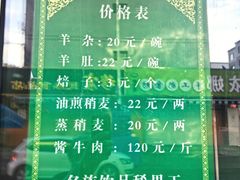 价格表
羊杂：20元/碗
羊肚：22元/碗
焙子：3元/个
油煎稍麦：22元/两
蒸稍麦：20元/两
酱牛肉：120元/斤